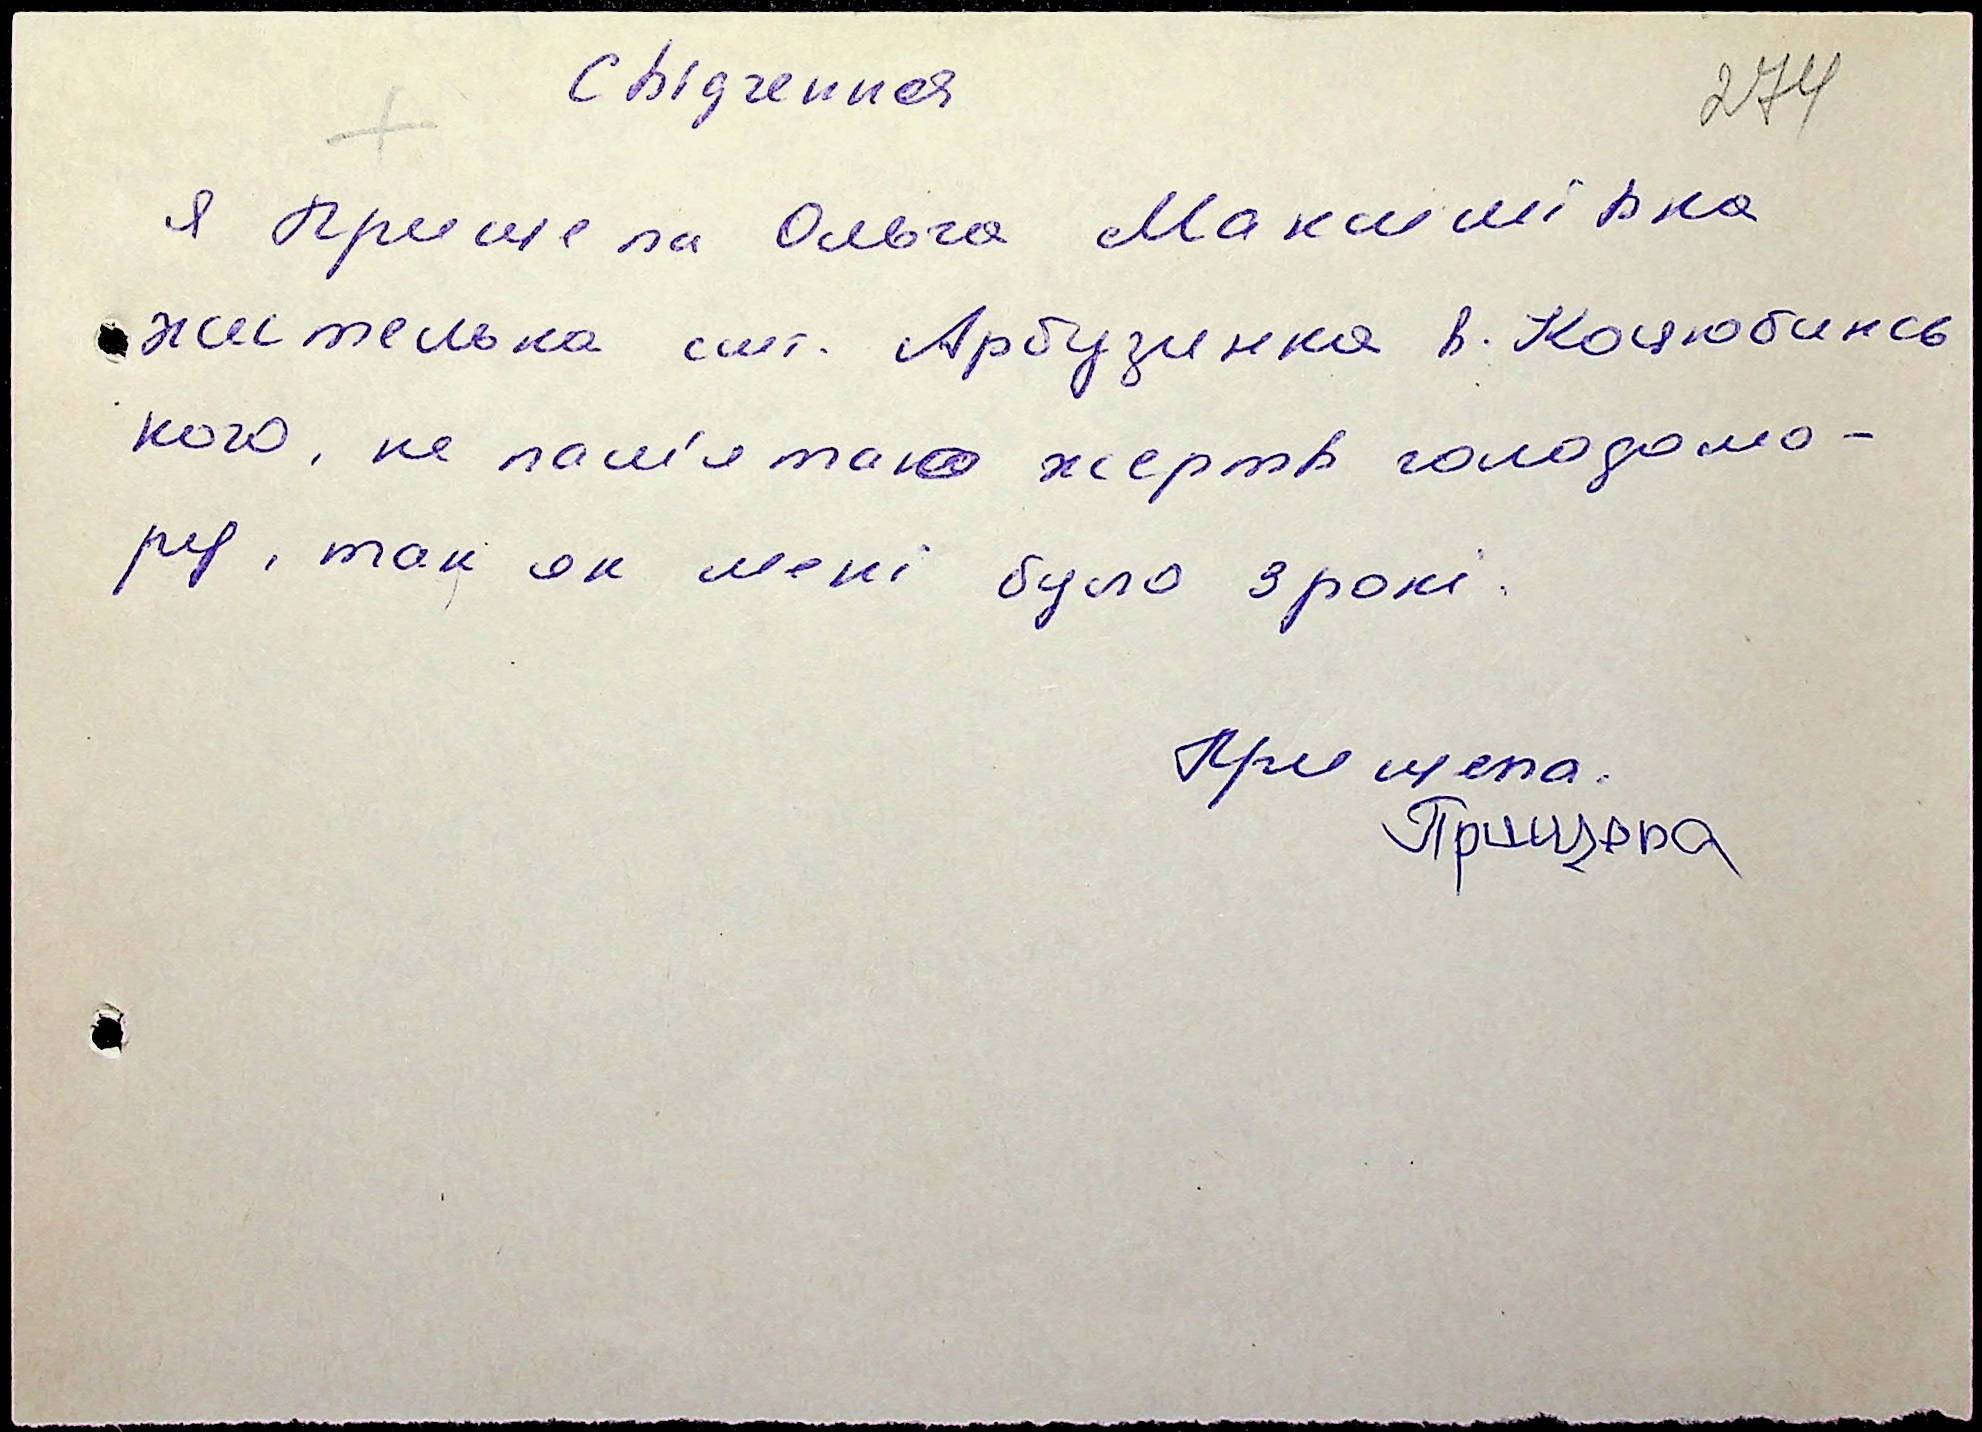 Свідчення
274
Я Прищепа Ольга Максимівна
жителька смт. Арбузинка в. Коцюбинсь
кого, не пам'ятаю жертв голодомо-
ру, так як мені було 3 рокі.
Прищепа.
Прищепа